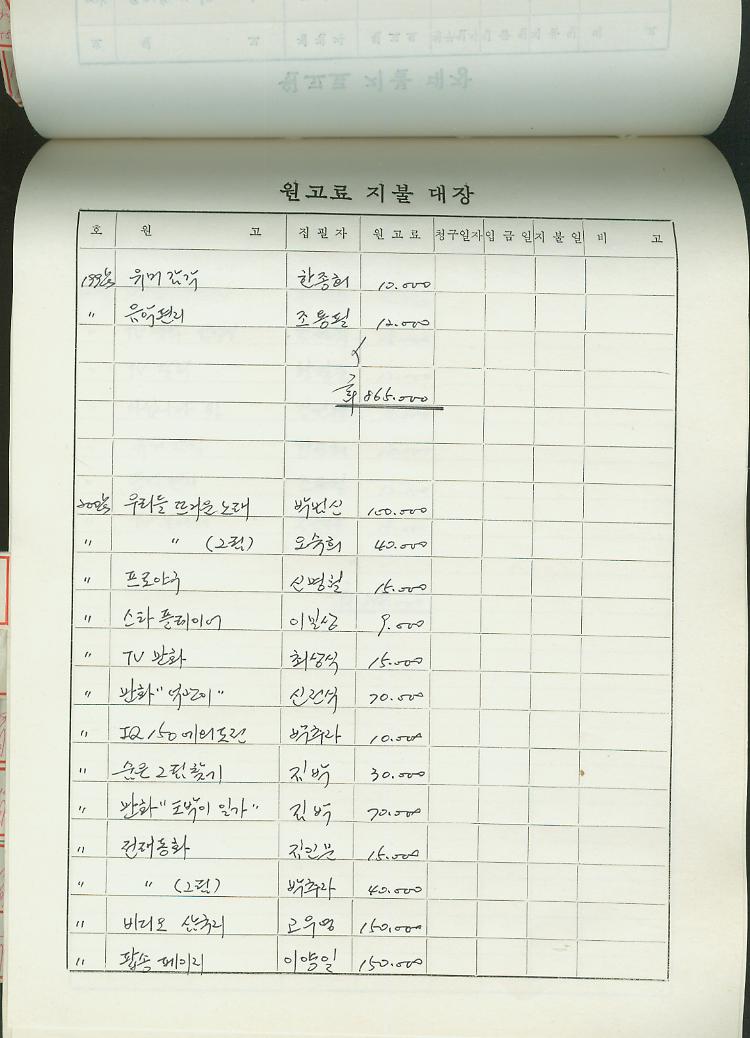 원고료 지불 대장
호 원 고 집필자 원고료 청구일자 입금일 지불일 비 고
199호 유머감각 한종희 10.000
" 음악편리 조용필 12.000
865.000
200호 우리들 뜨거운 노래 박범신 100.000
" " (그림) 오숙희 40.000
" 프로야구 신명철 15.000
" 스타 플레이어 9.000
" TV 만화 최상식 15.000
" 만화 " " 70.000
" IQ 150에의 도전 10.000
" 숨은 그림 찾기 김박 30.000
" 만화 " 일가" 김박 70.000
" 전래동화 15.000
" " (그림) 40.000
" 비디오 고우영 150.000
" 팝송 페이지 이양일 150.000